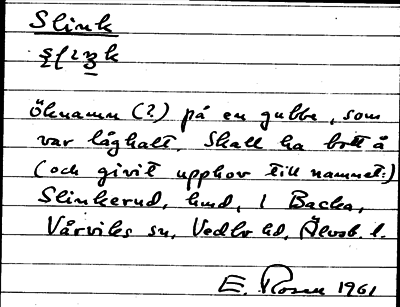 Slink
öknamn (?) på en gubbe, som
var låghalt. Skall ha bott å
(och givit upphov till namnet:)
Slinkerud, hmd, i Backa,
Vårviks sn, Vedbo hd, Älvsb. l.
E. Rosen 1961